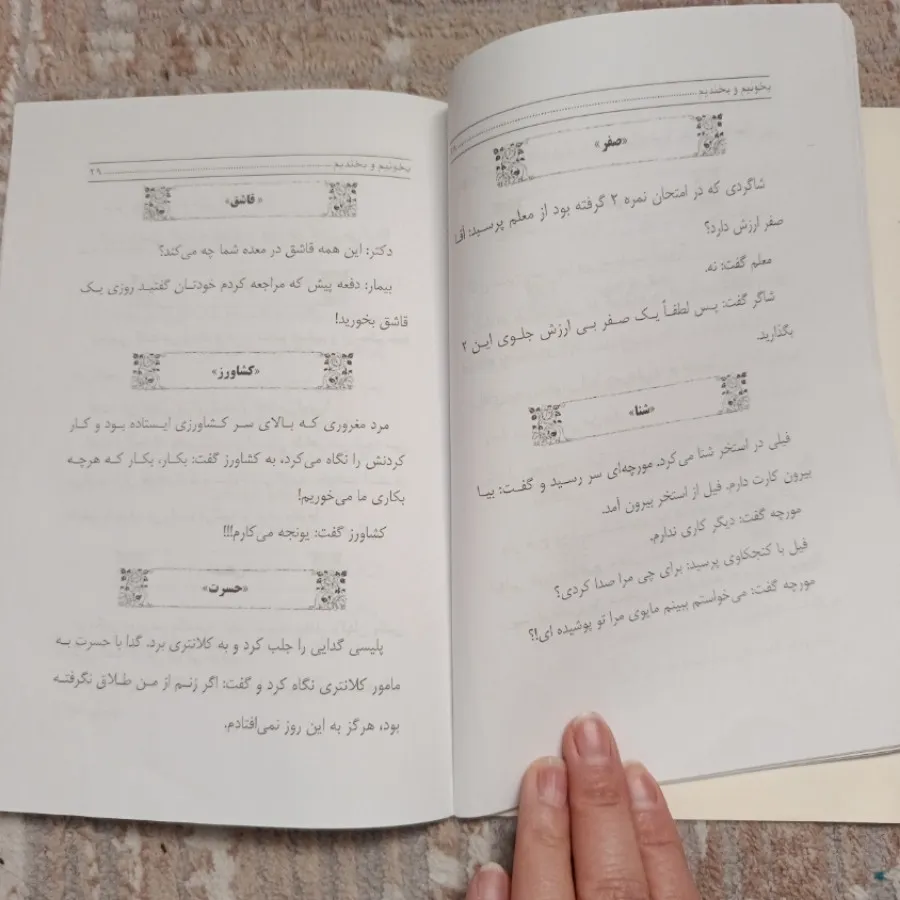 بخونیم و بخندیم
«صفر»
شاگردی که در امتحان نمره ۲ گرفته بود از معلم پرسید:
صفر ارزش دارد؟
معلم گفت: نه.
شاگر گفت: پس لطفاً یک صفر بی ارزش جلوی این ۲
بگذارید.
«شنا»
فیلی در استخر شنا می‌کرد. مورچه‌ای سر رسید و گفت: بیا
بیرون کارت دارم. فیل از استخر بیرون آمد.
مورچه گفت: دیگر کاری ندارم.
فیل با کنجکاوی پرسید: برای چی مرا صدا کردی؟
مورچه گفت: می‌خواستم ببینم مایوی مرا تو پوشیده ای!؟
بخونیم و بخندیم ۲۹
«قاشق»
دکتر: این همه قاشق در معده شما چه می‌کند؟
بیمار: دفعه پیش که مراجعه کردم خودتان گفتید روزی یک
قاشق بخورید!
«کشاورز»
مرد مغروری که بالای سر کشاورزی ایستاده بود و کار
کردنش را نگاه می‌کرد، به کشاورز گفت: بکار، بکار که هرچه
بکاری ما می‌خوریم!
کشاورز گفت: یونجه می‌کارم!!!
«حسرت»
پلیسی گدایی را جلب کرد و به کلانتری برد. گدا با حسرت به
مامور کلانتری نگاه کرد و گفت: اگر زنم از من طلاق نگرفته
بود، هرگز به این روز نمی‌افتادم.